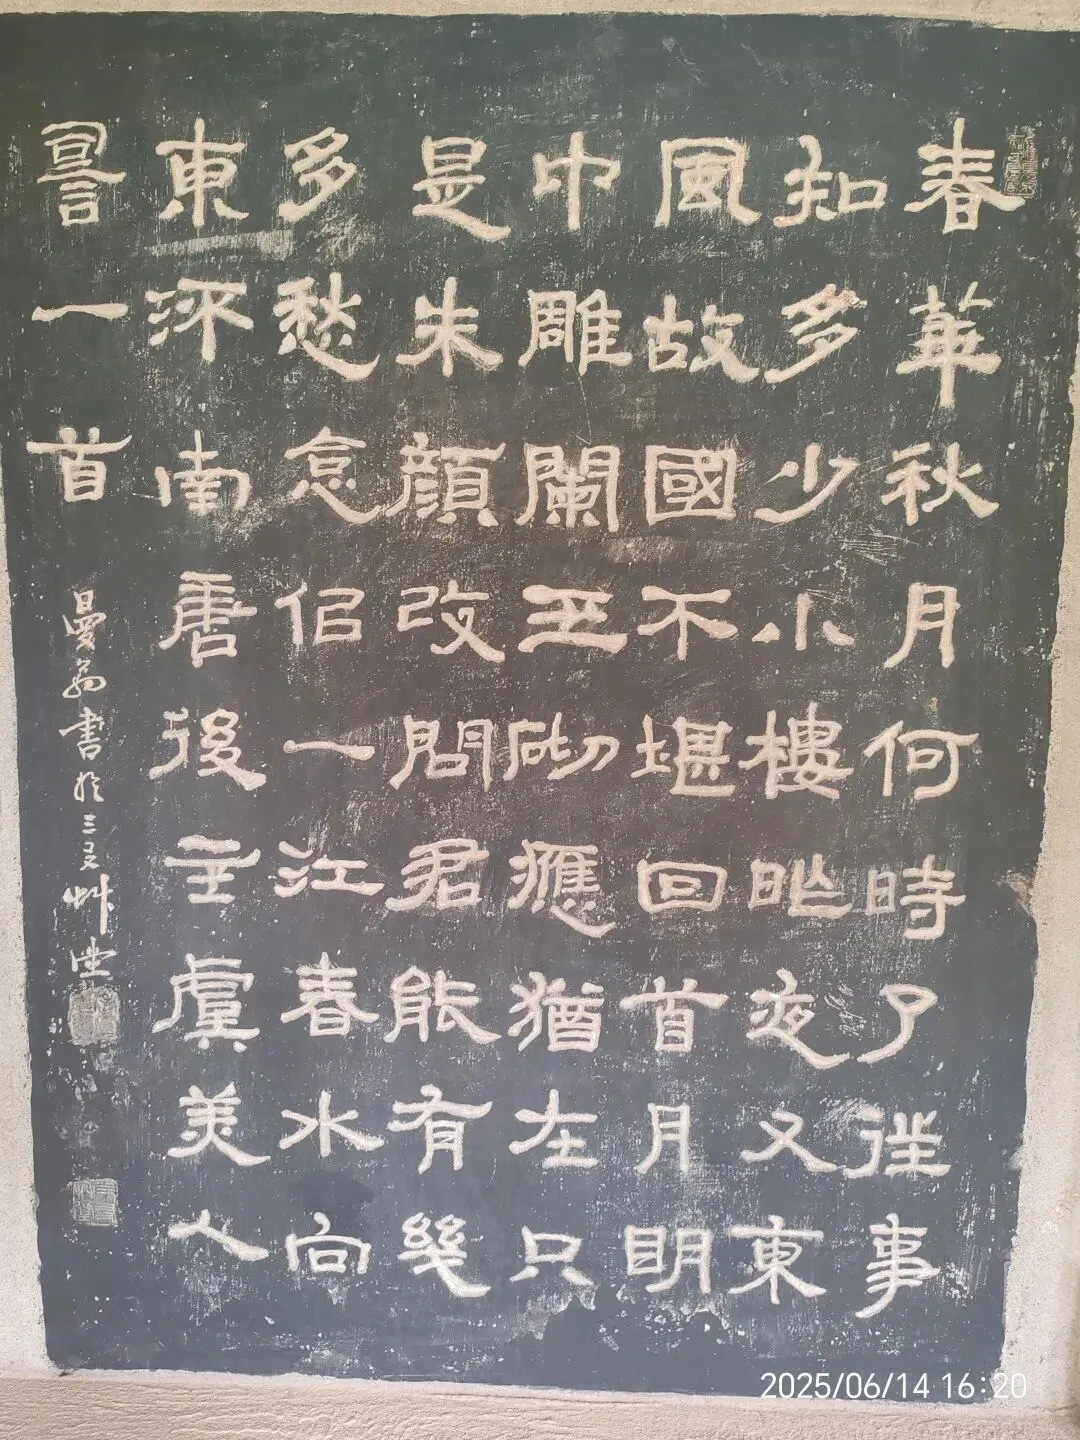 春華秋月何時了往事
知多少小樓昨夜又東
風故國不堪回首月明
中雕闌玉砌應猶在只
是朱顏改問君能有幾
多愁恰佀一江春水向
東流南唐後主虞美人
䛐一首
曼翁書於三友艸堂
2025/06/14 16:20